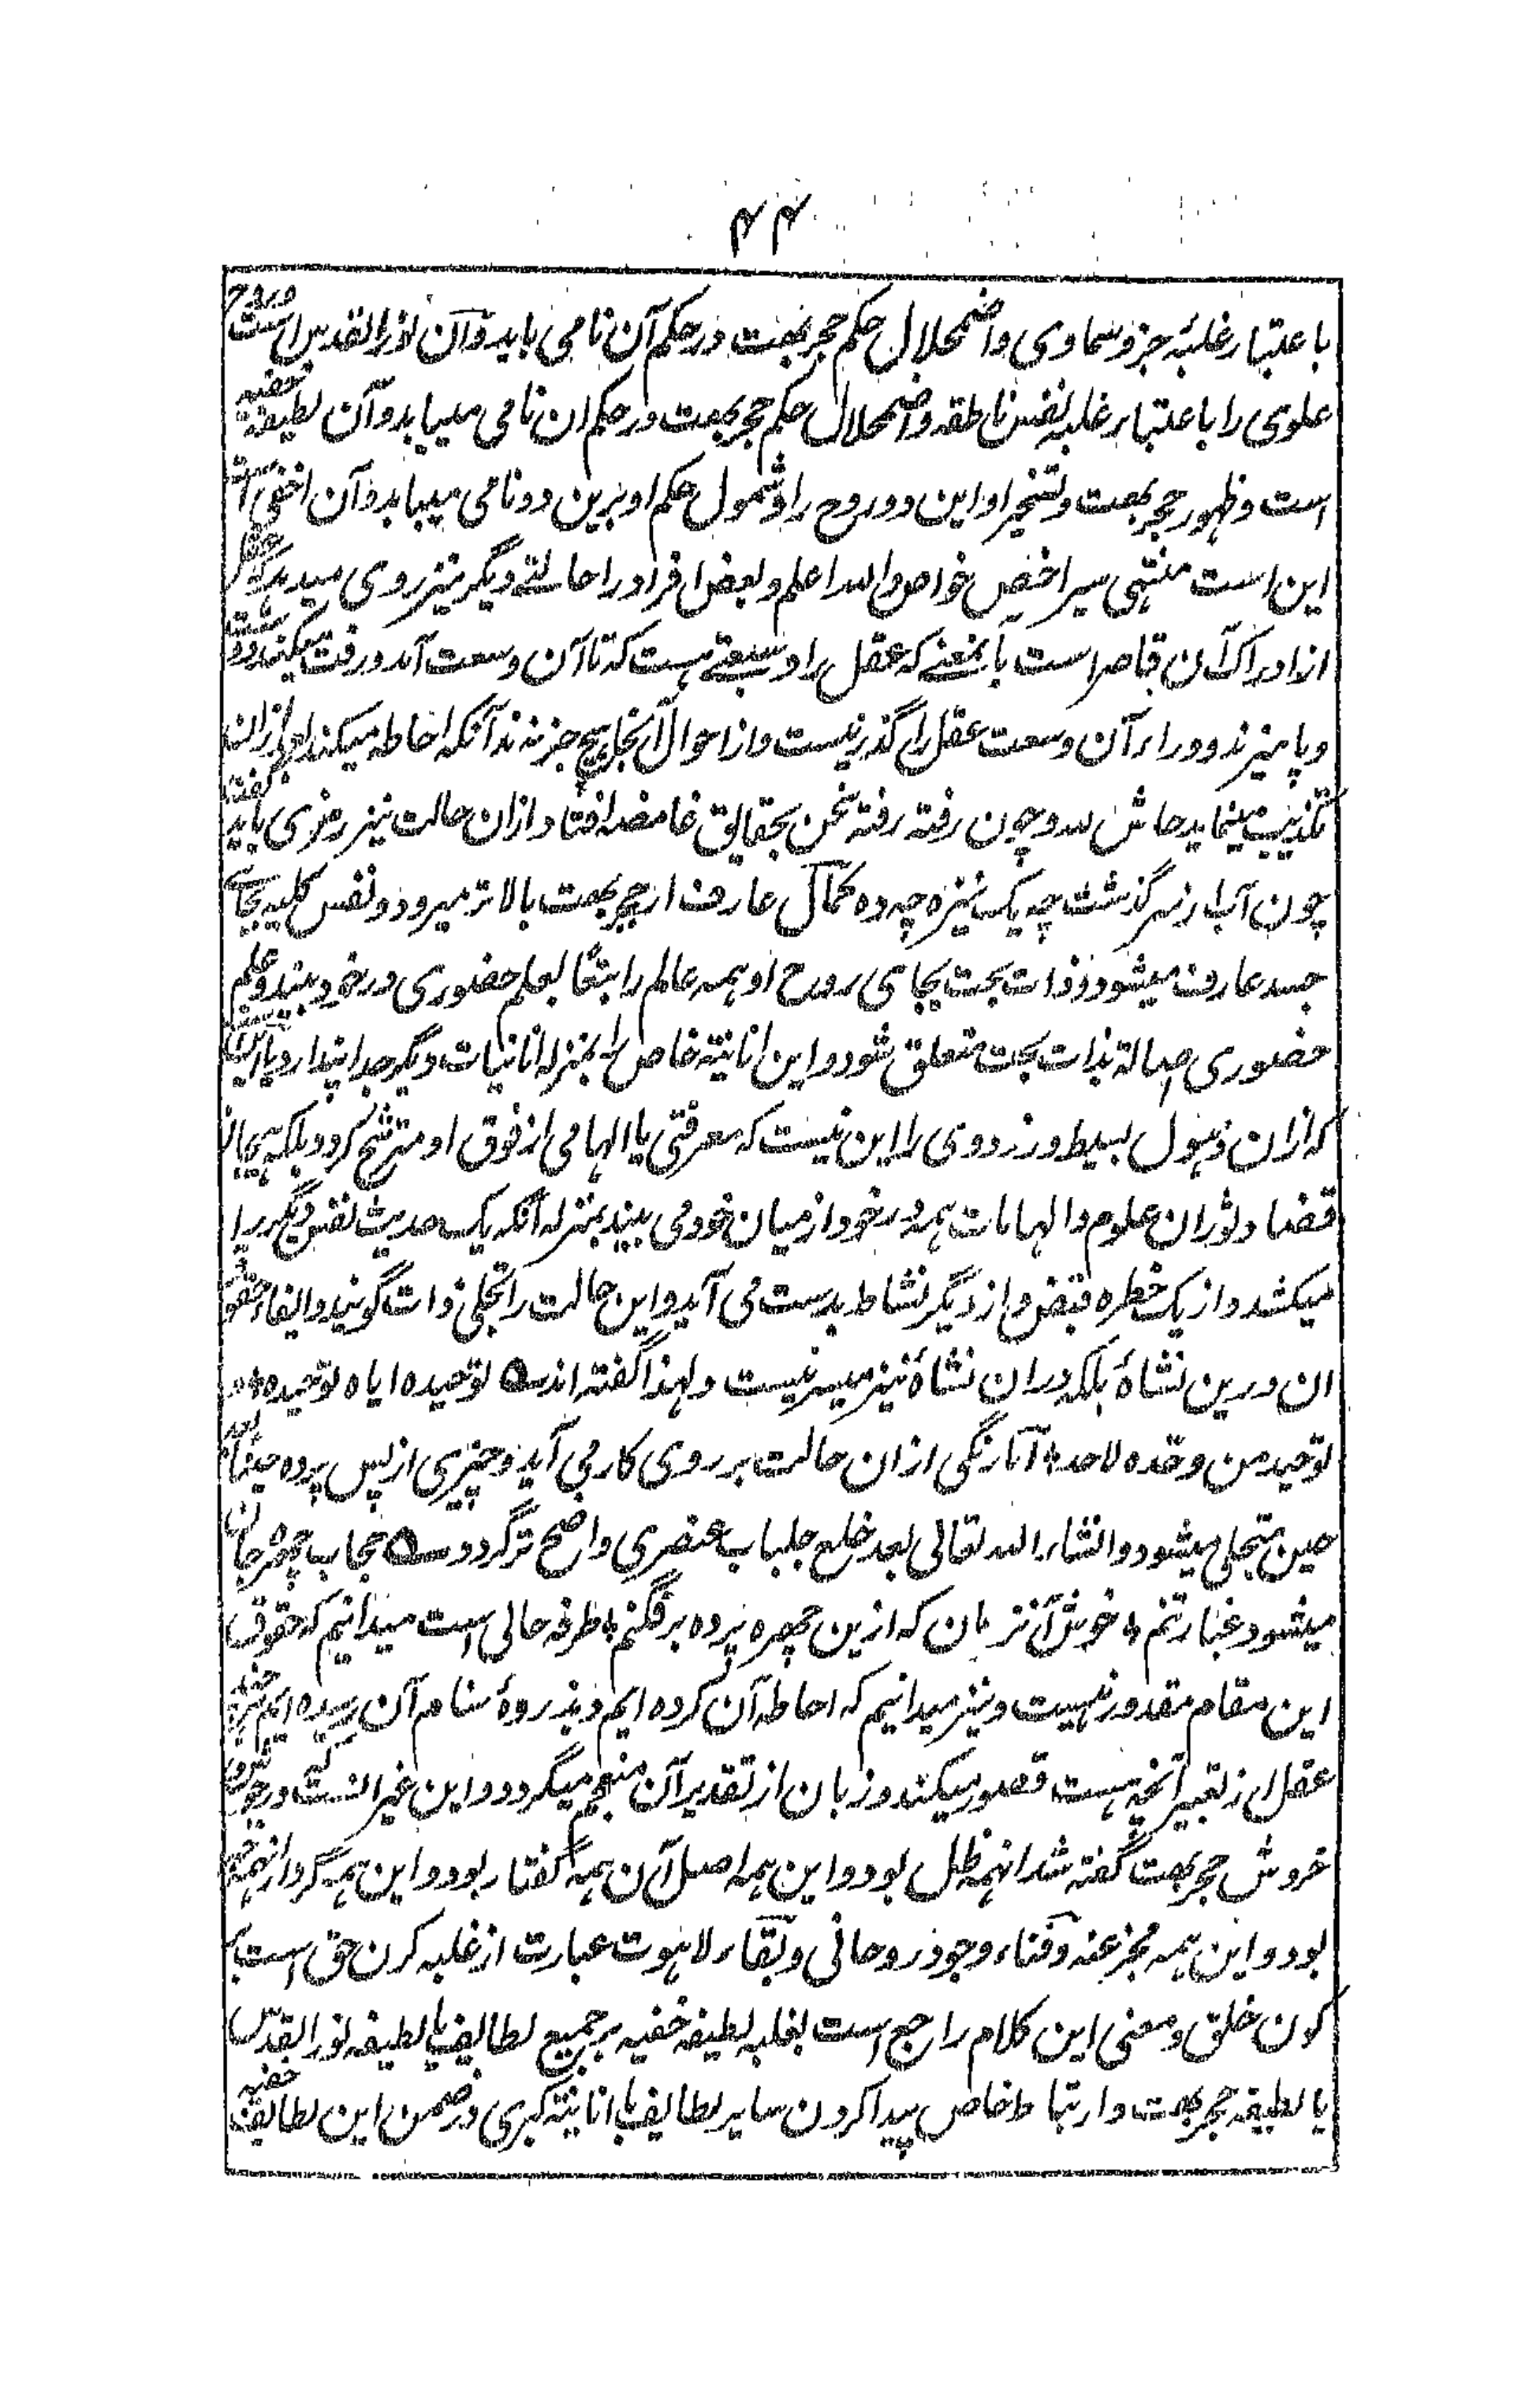 ۴۴
باعتبار غلبهٔ جزو سماوی واضمحلال حکم حجر بهت در حکم آن نامی باید و آن نور القدس است و روح
علوی را باعتبار غلبه نفس ناطقه واضمحلال حکم حجر بهت در حکم ان نامی میباید و آن لطیفهٔ خفیه
است و ظهور حجر بهت و تسخیر او این دو روح را و شمول حکم او برین دو نامی میباید و آن اخفی است
این است منتهی سیر اخص خواص والله اعلم و بعض افراد را حالتے دیگر نیز روی میدهد که عقل
از ادراک آن قاصر است باینمعنے که عقل را وسعتے هست که تا آن وسعت آمد و رفت میکند و دست
و پا میزند و وراء آن وسعت عقل را گذر نیست و از احوال آنجا هیچ خبر نه نه آنکه احاطه میکند بعد ازان
تکذیب مینماید حاش لله و چون رفته رفته سخن بحقایق غامضه افتاد ازان حالت نیز رمزی باید گفت
چون آب از سر گذشت چه یک نیزه چه ده کمال عارف از حجر بهت بالاتر میرود و نفس کلیه بجای
جسد عارف میشود و ذات بحت بجای روح او همه عالم را تبعًا بعلم حضوری در خود بیند و علم
حضوری اصالة بذات بحت متعلق شود و این انانیتهٔ خاص را بمنزله انانیات دیگر جدا پندارد یا
که ازان ذهول بسیط ورزد وی را این نیست که معرفتی یا الهامی از فوق او مترشح گردد بلکه هیجان
قضا و ثوران علوم و الهامات همه در خود از میان خود می بیند بمنزله آنکه یک حدیث نفس دیگر را
میکشد و از یک خطره قبض و از دیگر نشاط بدست می آید و این حالت را تجلی ذات گویند و ایفاء حقوق
ان درین نشاهٔ بلکه دران نشاهٔ نیز میسر نیست و لهذا گفته اند ؎ توحیده ایاه توحیده *
توحید من وحده لاحد * اما رنگی ازان حالت بر روی کار می آید و چیزی از پس پرده حینًا بعد
حین متجلی میشود و انشاء الله تعالی بعد خلع جلباب عنصری واضح تر گردد ؎ حجاب چهرهٔ جان
میشود غبار تنم * خوش آنزمان که ازین چهره پرده برفگنم * طرفه حالی است میدانیم که حقوق
این مقام مقدور نهیت و نیز میدانیم که احاطه آن کرده ایم و بذروهٔ سنام آن رسیده ایم
عقل از تعبیر آنچه هست قصور میکند و زبان از تقدیر آن منعجم میگردد و این غیر انست که در جوش و
خروش حجر بهت گفته شد انهمه ظل بود و این همه اصل آن همه گفتار بود و این همه کردار انهمه
بود و این همه مخبر عنه و فناء وجود روحانی و بقاء لاهوت عبارت از غلبه کردن حق است بر
کون خلق و معنی این کلام راجع است بغلبه لطیفه خفیه بر جمیع لطایف یا لطیفه نور القدس
یا لطیفه حجر بهت و ارتباط خاص پیدا کردن سایر لطایف با انانیتهٔ کبری در ضمن این لطایف خفیه